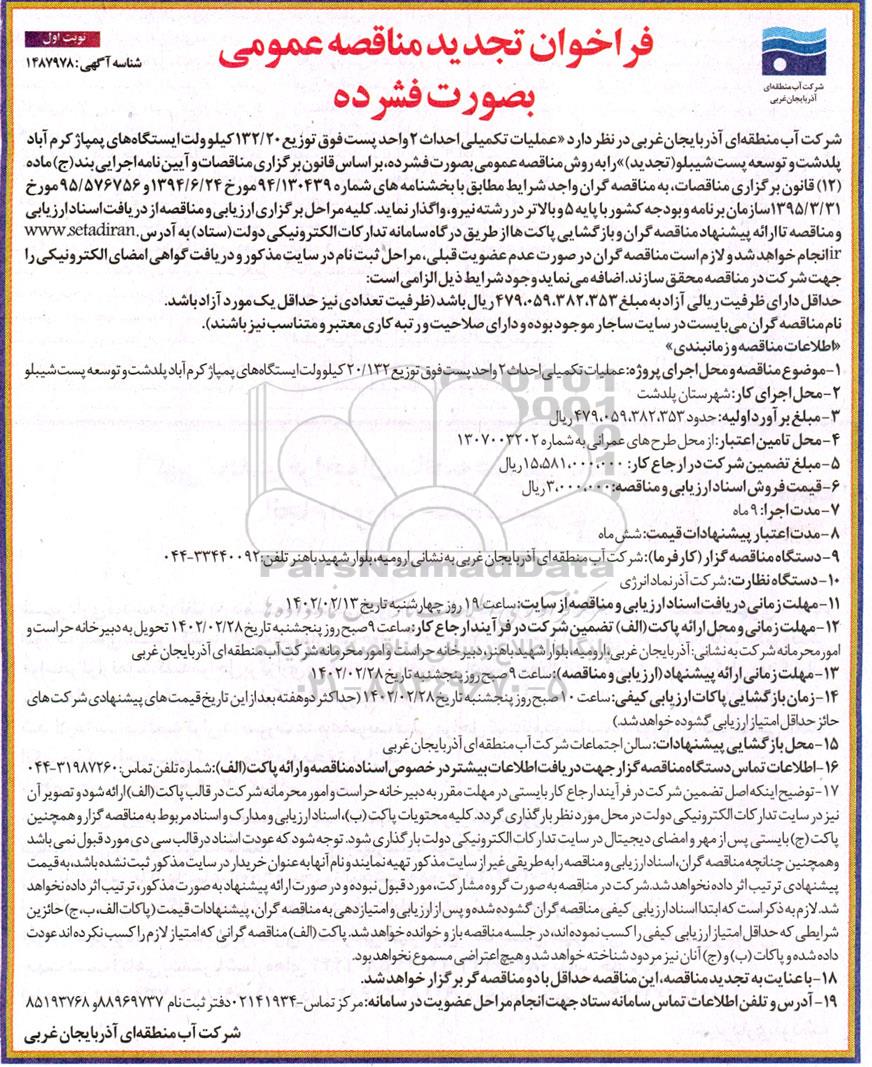 نوبت اول
شناسه آگهی: ۱۴۸۷۹۷۸
فراخوان تجدید مناقصه عمومی
بصورت فشرده
شرکت آب منطقه‌ای
آذربایجان غربی
شرکت آب منطقه‌ای آذربایجان غربی در نظر دارد «عملیات تکمیلی احداث ۲ واحد پست فوق توزیع ۱۳۲/۲۰ کیلو ولت ایستگاه‌های پمپاژ کرم آباد
پلدشت و توسعه پست شیبلو (تجدید)» را به روش مناقصه عمومی بصورت فشرده، بر اساس قانون برگزاری مناقصات و آیین نامه اجرایی بند (ج) ماده
(۱۲) قانون برگزاری مناقصات، به مناقصه گران واجد شرایط مطابق با بخشنامه های شماره ۹۴/۱۳۰۴۳۹ مورخ ۱۳۹۴/۶/۲۴ و ۹۵/۵۷۶۷۵۶ مورخ
۱۳۹۵/۳/۳۱ سازمان برنامه و بودجه کشور با پایه ۵ و بالاتر در رشته نیرو، واگذار نماید. کلیه مراحل برگزاری ارزیابی و مناقصه از دریافت اسناد ارزیابی
و مناقصه تا ارائه پیشنهاد مناقصه گران و بازگشایی پاکت ها از طریق درگاه سامانه تدارکات الکترونیکی دولت (ستاد) به آدرس www.setadiran.
ir انجام خواهد شد و لازم است مناقصه گران در صورت عدم عضویت قبلی، مراحل ثبت نام در سایت مذکور و دریافت گواهی امضای الکترونیکی را
جهت شرکت در مناقصه محقق سازند. اضافه می نماید وجود شرایط ذیل الزامی است:
حداقل دارای ظرفیت ریالی آزاد به مبلغ ۴۷۹،۰۵۹،۳۸۲،۳۵۳ ریال باشد (ظرفیت تعدادی نیز حداقل یک مورد آزاد باشد.
نام مناقصه گران می بایست در سایت ساجار موجود بوده و دارای صلاحیت و رتبه کاری معتبر و متناسب نیز باشند).
«اطلاعات مناقصه و زمانبندی»
۱- موضوع مناقصه و محل اجرای پروژه: عملیات تکمیلی احداث ۲ واحد پست فوق توزیع ۲۰/۱۳۲ کیلو ولت ایستگاه‌های پمپاژ کرم آباد پلدشت و توسعه پست شیبلو
۲- محل اجرای کار: شهرستان پلدشت
۳- مبلغ برآورد اولیه: حدود ۴۷۹،۰۵۹،۳۸۲،۳۵۳ ریال
۴- محل تامین اعتبار: از محل طرح های عمرانی به شماره ۱۳۰۷۰۰۳۲۰۲
۵- مبلغ تضمین شرکت در ارجاع کار: ۱۵،۵۸۱،۰۰۰،۰۰۰ ریال
۶- قیمت فروش اسناد ارزیابی و مناقصه: ۳،۰۰۰،۰۰۰ ریال
۷- مدت اجرا: ۹ ماه
۸- مدت اعتبار پیشنهادات قیمت: شش ماه
۹- دستگاه مناقصه گزار (کارفرما): شرکت آب منطقه ای آذربایجان غربی به نشانی ارومیه، بلوار شهید باهنر تلفن: ۳۳۴۴۰۰۹۲-۰۴۴
۱۰- دستگاه نظارت: شرکت آذر نماد انرژی
۱۱- مهلت زمانی دریافت اسناد ارزیابی و مناقصه از سایت: ساعت ۱۹ روز چهارشنبه تاریخ ۱۴۰۲/۰۲/۱۳
۱۲- مهلت زمانی و محل ارائه پاکت (الف) تضمین شرکت در فرآیند ارجاع کار: ساعت ۹ صبح روز پنجشنبه تاریخ ۱۴۰۲/۰۲/۲۸ تحویل به دبیرخانه حراست و
امور محرمانه شرکت به نشانی: آذربایجان غربی، ارومیه، بلوار شهید باهنر، دبیرخانه حراست و امور محرمانه شرکت آب منطقه ای آذربایجان غربی
۱۳- مهلت زمانی ارائه پیشنهاد (ارزیابی و مناقصه): ساعت ۹ صبح روز پنجشنبه تاریخ ۱۴۰۲/۰۲/۲۸
۱۴- زمان بازگشایی پاکات ارزیابی کیفی: ساعت ۱۰ صبح روز پنجشنبه تاریخ ۱۴۰۲/۰۲/۲۸ (حداکثر دو هفته بعد از این تاریخ قیمت های پیشنهادی شرکت های
حائز حداقل امتیاز ارزیابی گشوده خواهد شد.)
۱۵- محل بازگشایی پیشنهادات: سالن اجتماعات شرکت آب منطقه ای آذربایجان غربی
۱۶- اطلاعات تماس دستگاه مناقصه گزار جهت دریافت اطلاعات بیشتر در خصوص اسناد مناقصه و ارائه پاکت (الف): شماره تلفن تماس: ۳۱۹۸۷۲۶۰-۰۴۴
۱۷- توضیح اینکه اصل تضمین شرکت در فرآیند ارجاع کار بایستی در مهلت مقرر به دبیرخانه حراست و امور محرمانه شرکت در قالب پاکت (الف) ارائه شود و تصویر آن
نیز در سایت تدارکات الکترونیکی دولت در محل مورد نظر بارگذاری گردد. کلیه محتویات پاکت (ب)، اسناد ارزیابی و مدارک و اسناد مربوط به مناقصه گزار و همچنین
پاکت (ج) بایستی پس از مهر و امضای دیجیتال در سایت تدارکات الکترونیکی دولت بارگذاری شود. توجه شود که عودت اسناد در قالب سی دی مورد قبول نمی باشد
وهمچنین چنانچه مناقصه گران، اسناد ارزیابی و مناقصه را به طریقی غیر از سایت مذکور تهیه نمایند و نام آنها به عنوان خریدار در سایت مذکور ثبت نشده باشد، به قیمت
پیشنهادی ترتیب اثر داده نخواهد شد. شرکت در مناقصه به صورت گروه مشارکت، مورد قبول نبوده و در صورت ارائه پیشنهاد به صورت مذکور، ترتیب اثر داده نخواهد
شد. لازم به ذکر است که ابتدا اسناد ارزیابی کیفی مناقصه گران گشوده شده و پس از ارزیابی و امتیازدهی به مناقصه گران، پیشنهادات قیمت (پاکات الف، ب، ج) حائزین
شرایطی که حداقل امتیاز ارزیابی کیفی را کسب نموده اند، در جلسه مناقصه باز و خوانده خواهد شد. پاکت (الف) مناقصه گرانی که امتیاز لازم را کسب نکرده اند عودت
داده شده و پاکات (ب) و (ج) آنان نیز مردود شناخته خواهد شد و هیچ اعتراضی مسموع نخواهد بود.
۱۸- با عنایت به تجدید مناقصه، این مناقصه حداقل با دو مناقصه گر برگزار خواهد شد.
۱۹- آدرس و تلفن اطلاعات تماس سامانه ستاد جهت انجام مراحل عضویت در سامانه: مرکز تماس-۰۲۱۴۱۹۳۴ دفتر ثبت نام ۸۸۹۶۹۷۳۷ و ۸۵۱۹۳۷۶۸
شرکت آب منطقه‌ای آذربایجان غربی
ParsNamadData